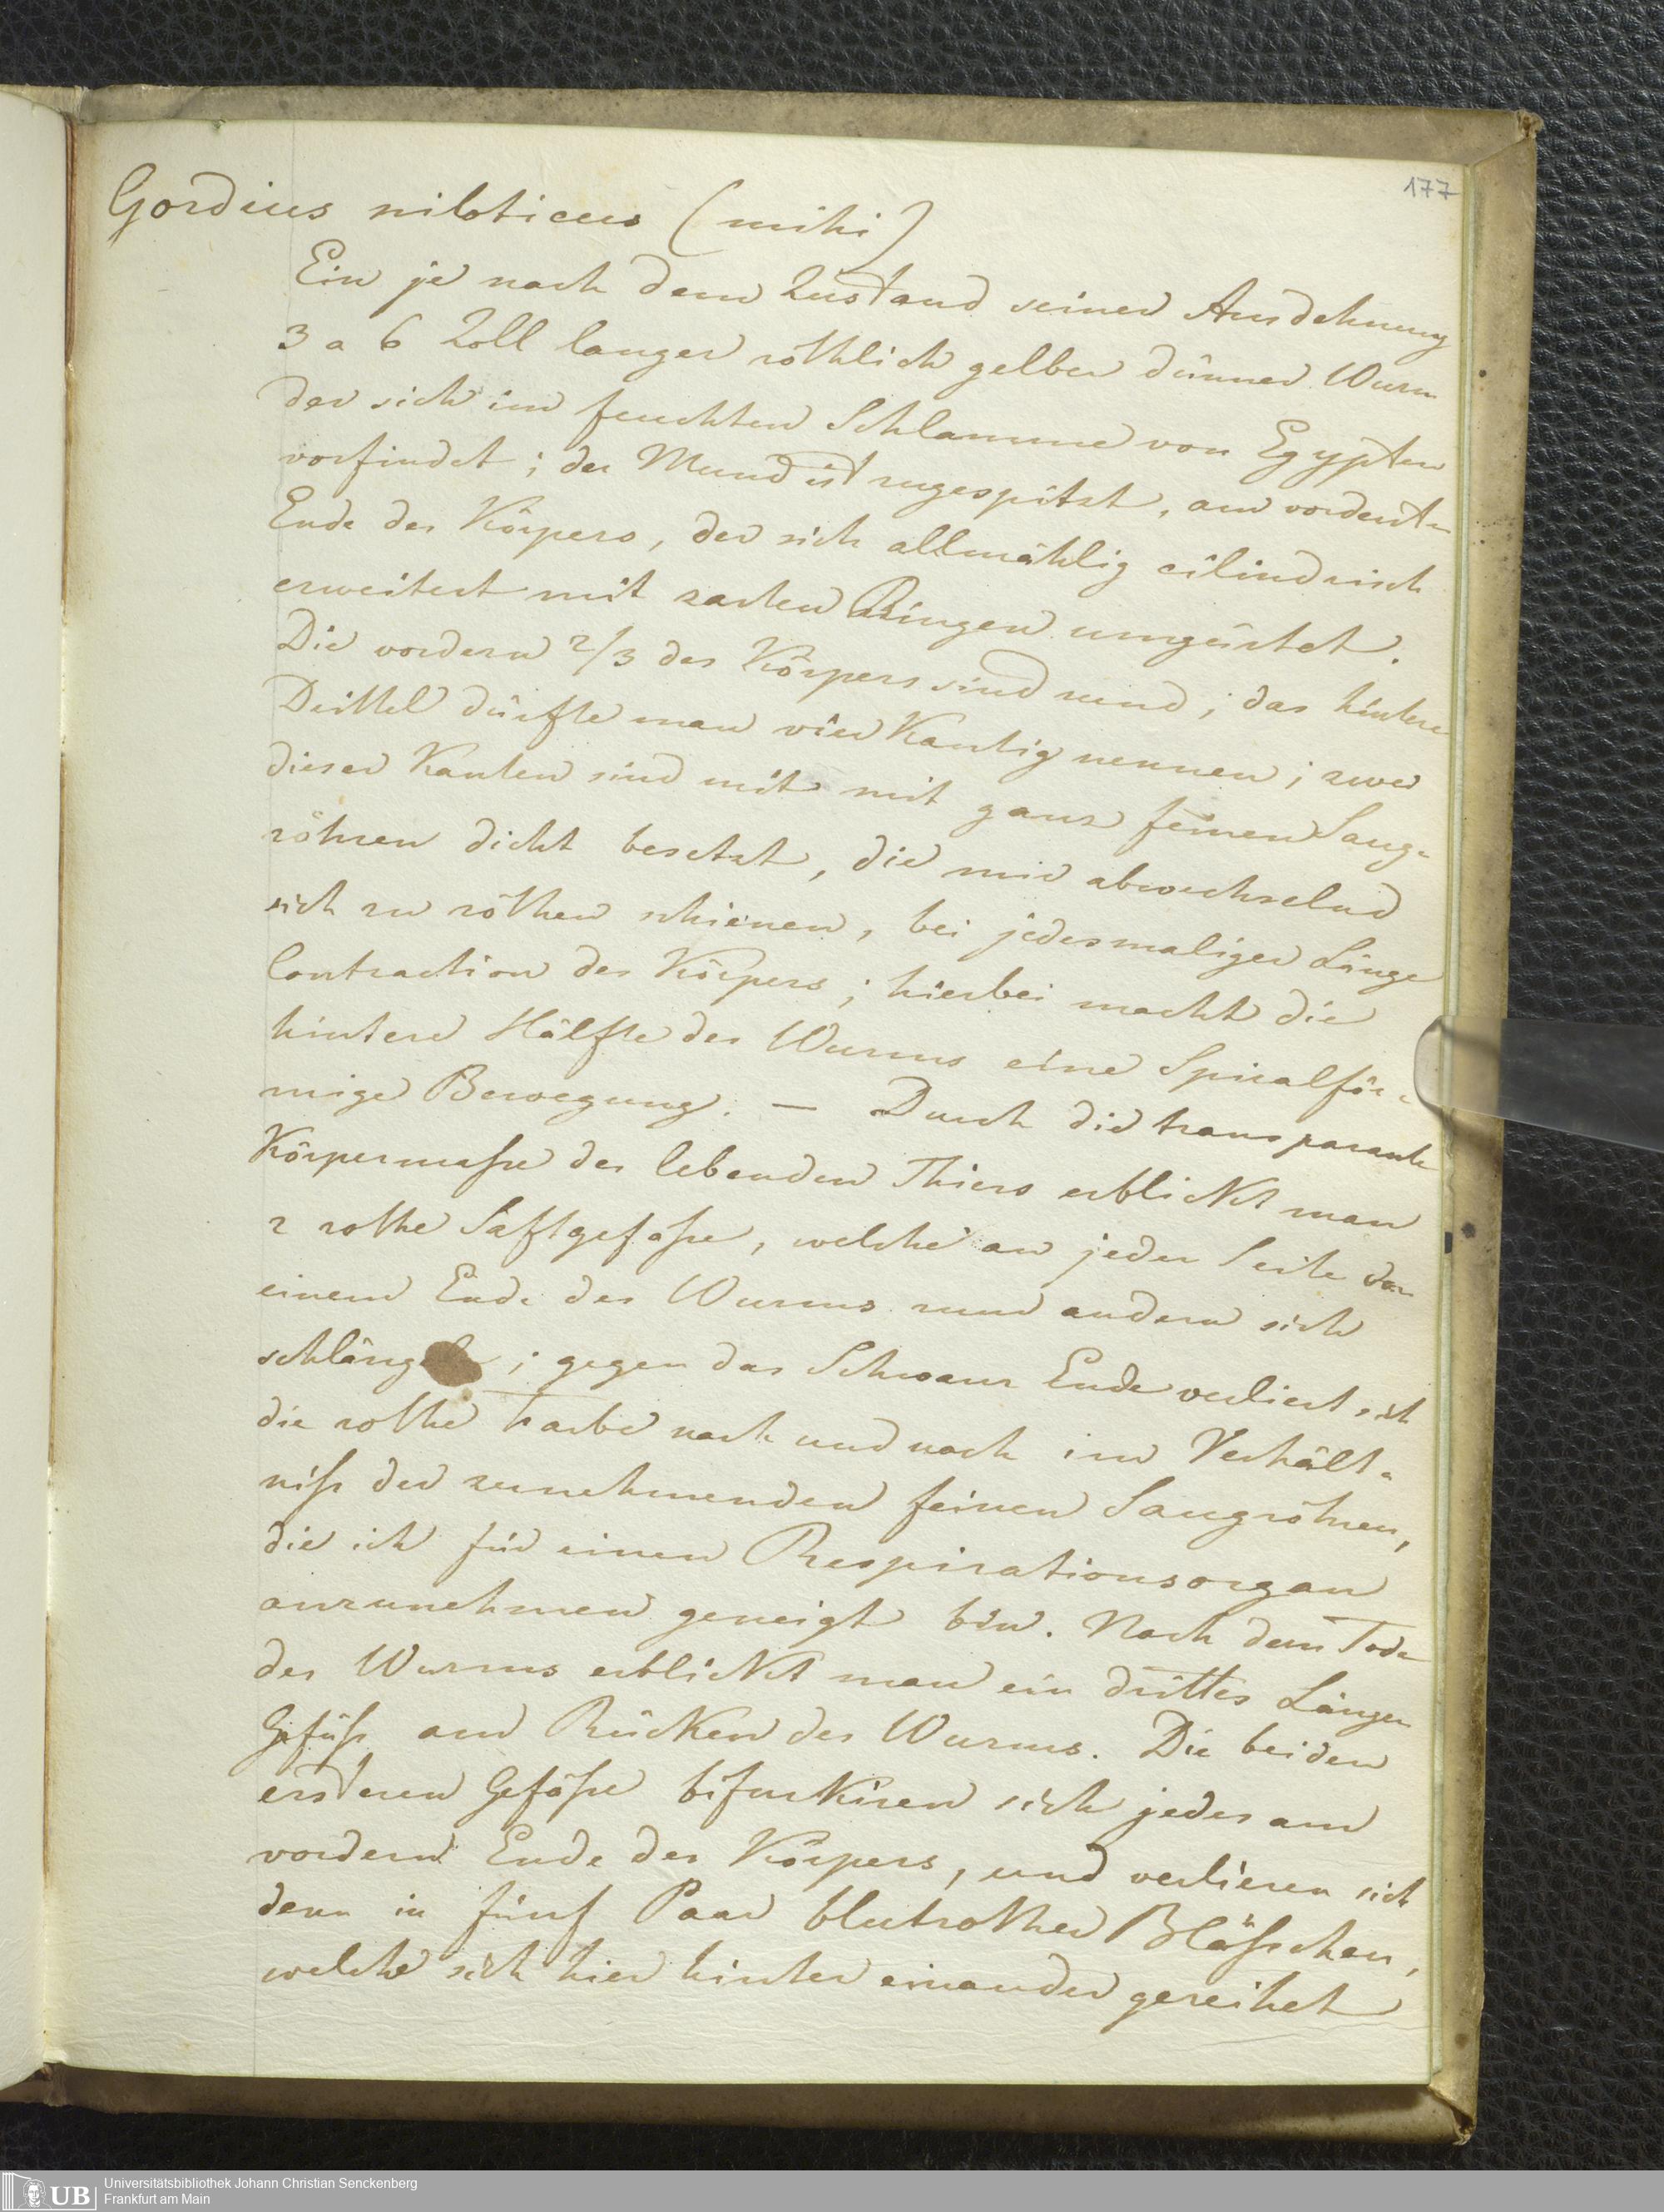 177
Gordius niloticus (mihi)
Ein je nach dem Zustand seiner Ausdehnung
3 a 6 Zoll langer röthlich gelber dünner Wurm
der sich im feuchten Schlamme von Egypten
vorfindet; der Mund ist zugespitzt, am vordersten
Ende des Körpers, der sich allmählig cilindrisch
erweitert mit zarten Ringen umgürtet.
Die vordern 2/3 des Körpers sind rund; das hintere
Drittel dürfte man vier Kantig nennen; zwei
dieser Kanten sind mit mit ganz feinen Saug-
röhren dicht besetzt, die mir abwechselnd
sich zu röthen schienen, bei jedesmaliger Länge
Contraction des Körpers; hierbei macht die
hintere Hälfte des Wurms eine Spiralför-
mige Bewegung. — Durch die transparante
Körpermaße des lebenden Thiers erblickt man
2 rothe Saftgefäße, welche an jeder Seite von
einem Ende des Wurms zum andern sich
; gegen das Schwanz Ende verliert sich
die rothe Farbe nach und nach im Verhält-
niß der zunehmenden feinen Saugröhren,
die ich für einen Respirationsorgan
anzunehmen geneigt bin. Nach dem Tode
des Wurms erblickt man ein drittes Längen
Gefäß am Rücken des Wurms. Die beiden
ersteren Gefäße bifurkiren sich jedes am
vordern Ende des Körpers, und verlieren sich
denn in fünf Paar blutrother Bläßchen,
welche sich hier hinter einander gereihet
UB
Universitätsbibliothek Johann Christian Senckenberg
Frankfurt am Main